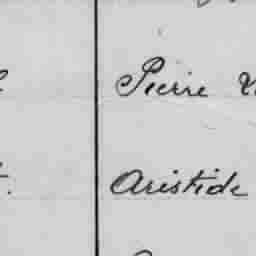 Pierre
Aristide